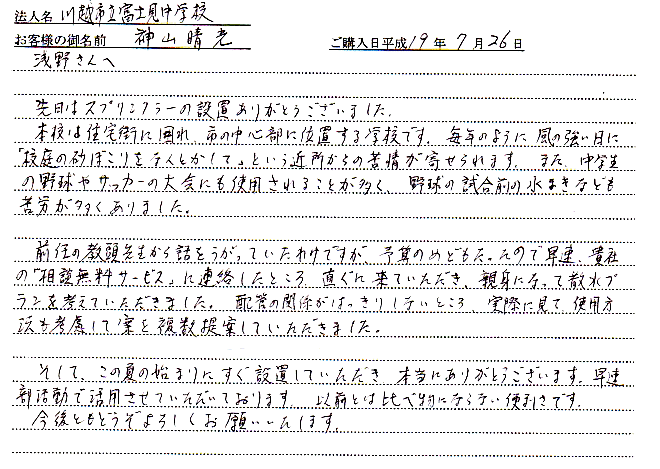 法人名 川越市立富士見中学校
お客様の御名前 神山晴光 ご購入日平成19年7月26日
浅野さんへ
先日はスプリンクラーの設置ありがとうございました。
本校は住宅街に囲まれ、市の中心部に位置する学校です。毎年のように風の強い日に
「校庭の砂ぼこりをなんとかして」という近所からの苦情が寄せられます。また、中学生
の野球やサッカーの大会にも使用されることが多く、野球の試合前の水まきなども
苦労が多くありました。
前任の教頭先生から話をうかがっていたわけですが、予算のめどもたったので早速、貴社
の"相談無料サービス"に連絡したところ、直ぐに来ていただき、親身になって散水プ
ランを考えていただきました。配管の関係がはっきりしないところ、実際に見て、使用方
法も考慮して案を複数提案していただきました。
そして、この夏の始まりにすぐ設置していただき本当にありがとうございます。早速
部活動で活用させていただいております。以前とは比べ物にならない便利さです。
今後ともどうぞよろしくお願いいたします。